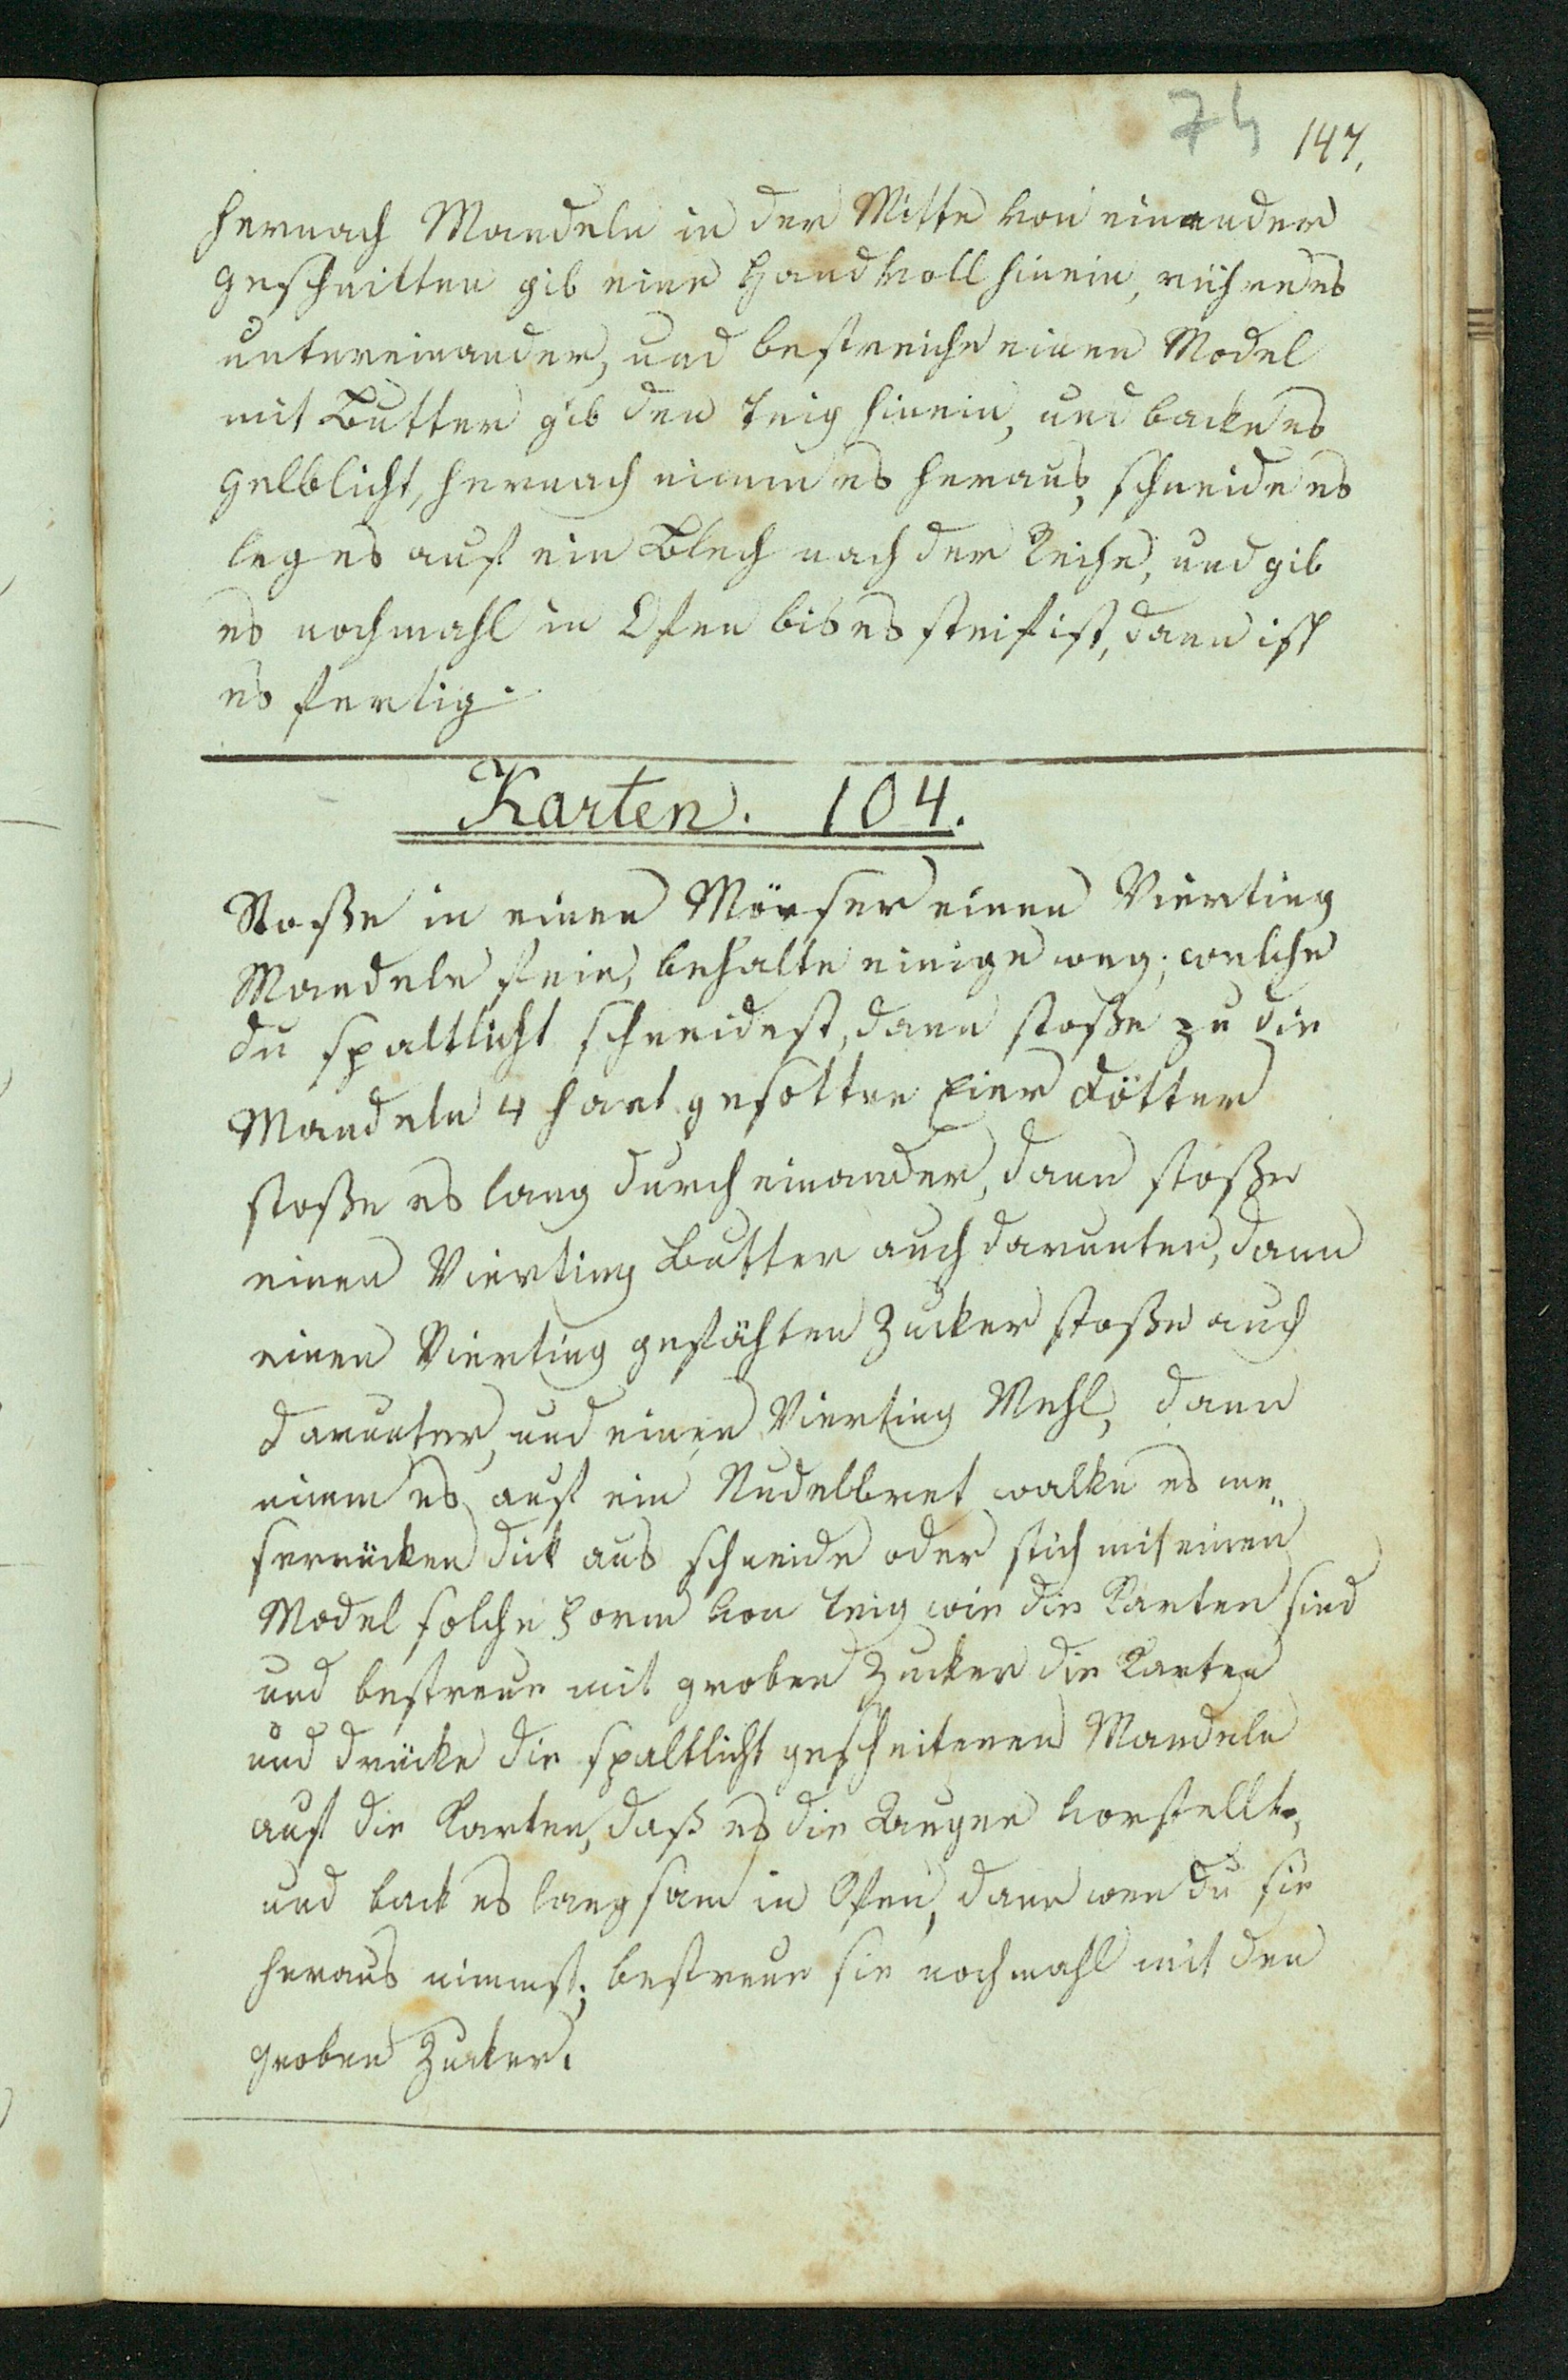 74 147.
hernach Mandeln in der Mitte von einander
geschnitten gib eine Hand voll hinein, rühre es
untereinander, und bestreiche einen Model
mit Butter gib den Teig hinein, und backe es
gelblicht, hernach nimm es heraus, schneide es
leg es auf ein Blech nach der Reihe, und gib
es nochmahl in Ofen bis es steif ist, dann ist
es fertig.
Karten. 104.
Stoße in einen Mörser einen Vierting
Mandeln fein, behalte einige weg; welche
du spaltlicht schneidest, dann stoße zu die
Mandeln 4 hart gesotten Eier Dötter
stoße es lang durch einander, dann stoße
einen Vierting Butter auch darunter, dann
einen Vierting gefähten Zucker stoße auch
darunter, und einen Vierting Mehl, dann
nimm es auf ein Nudelbret walke es me„
serrücken dick aus schneide oder stich mit einen
Model solche Form von Teig wie die Karten sind
und bestreue mit groben Zucker die Karten
und drücke die spaltlicht geschnitenen Mandeln
auf die Karten, daß es die Augen vorstellt,
und back es langsam in Ofen, dann wen du sie
heraus nimmst; bestreue sie nochmahl mit den
groben Zucker.